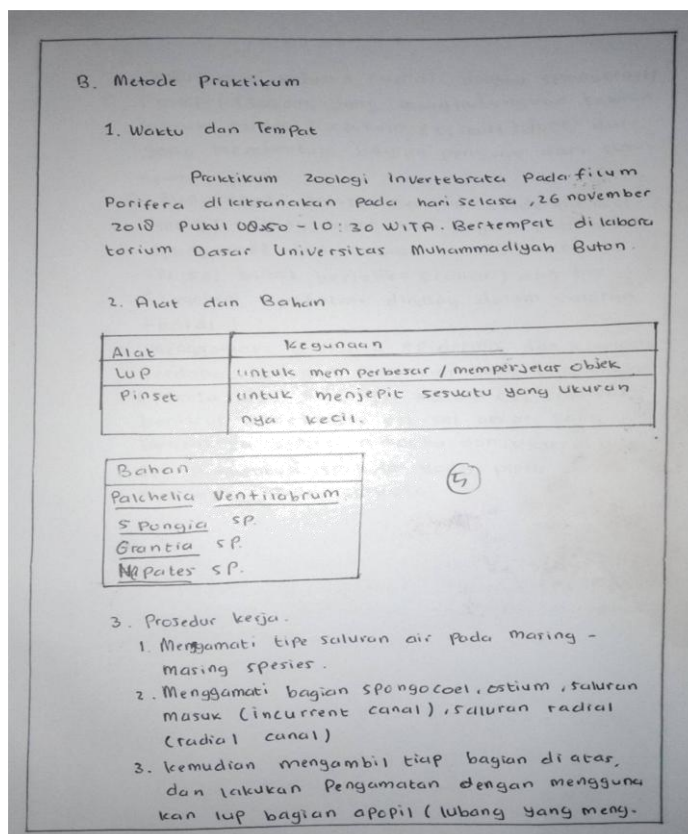 B. Metode Praktikum
1. Waktu dan Tempat
Praktikum Zoologi Invertebrata Pada filum
Porifera dilaksanakan pada hari selasa, 26 november
2018 Pukul 08:50 - 10:30 WITA. Bertempat di labora
torium Dasar Universitas Muhammadiyah Buton.
2. Alat dan Bahan
Alat Kegunaan
Lup untuk memperbesar / memperjelas objek
Pinset untuk menjepit sesuatu yang ukuran
nya kecil.
Bahan
Palchelia Ventilabrum
Spongia sp.
Grantia sp.
Napates sp.
5
3. Prosedur kerja.
1. Mengamati tipe saluran air pada masing -
masing spesies.
2. Menggamati bagian spongocoel, ostium, saluran
masuk (incurrent canal), saluran radial
(radial canal)
3. kemudian mengambil tiap bagian di atas,
dan lakukan Pengamatan dengan mengguna
kan lup bagian apopil (lubang yang meng-